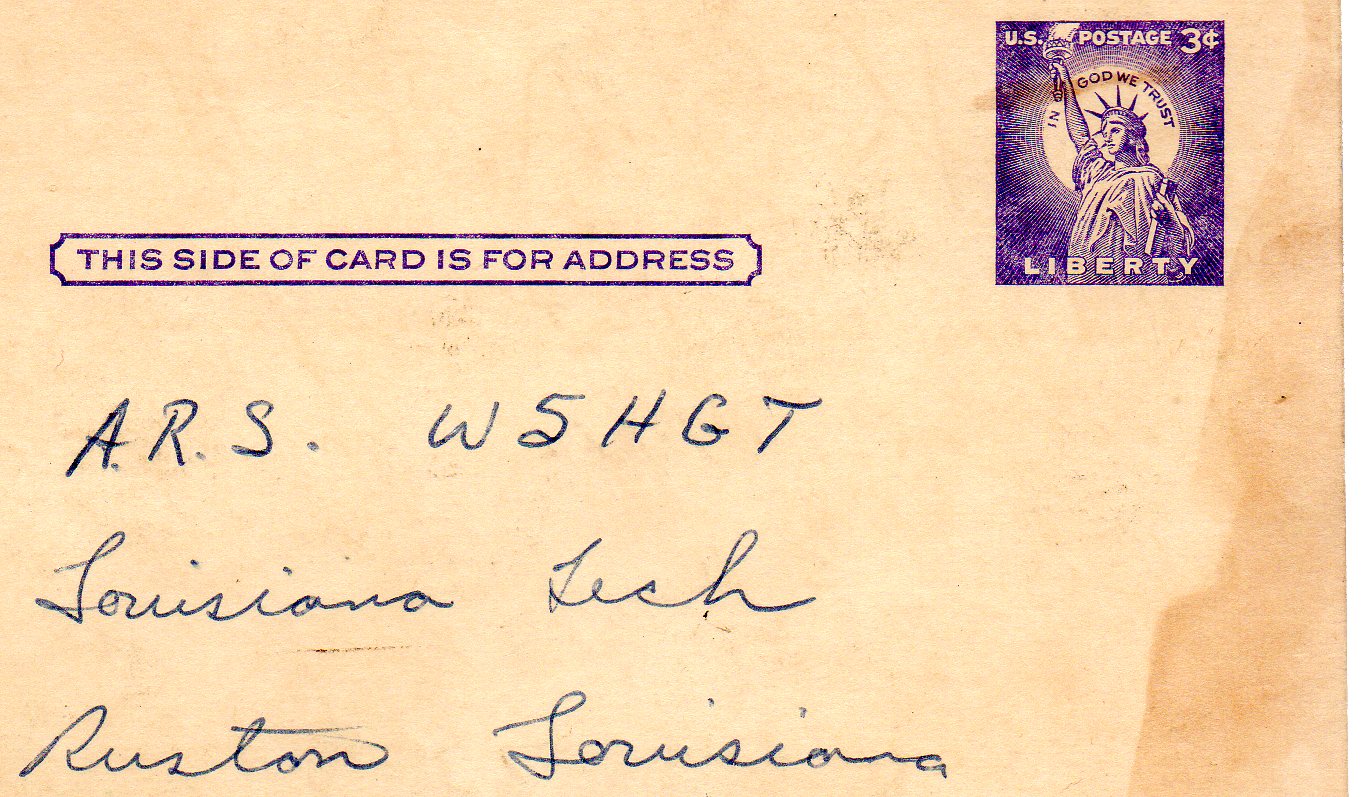 U.S. POSTAGE 3¢
IN GOD WE TRUST
LIBERTY
THIS SIDE OF CARD IS FOR ADDRESS
A.R.S. W5HGT
Louisiana Tech
Ruston Louisiana